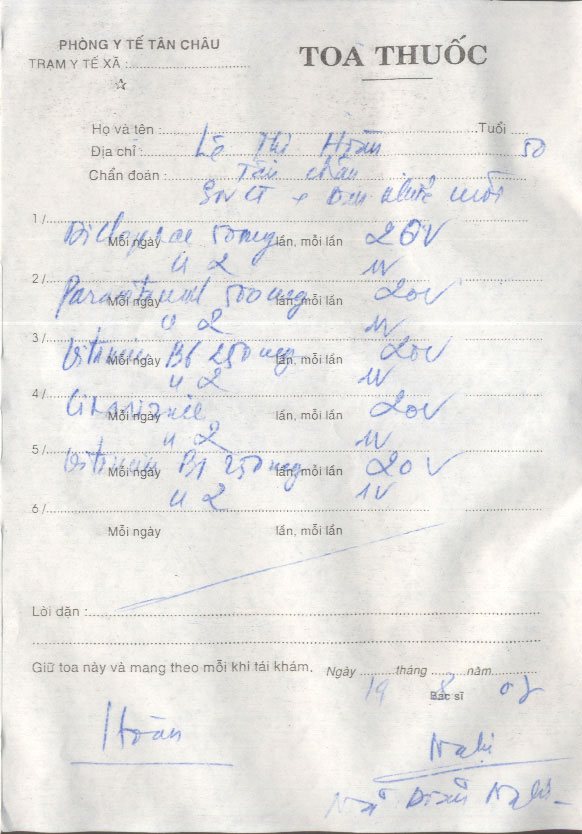 PHÒNG Y TẾ TÂN CHÂU
TRẠM Y TẾ XÃ :
TOA THUỐC
Họ và tên : Lê Thị Hoàn Tuổi 50
Địa chỉ : Tân Châu
Chẩn đoán :
1/ 50mg 20V
Mỗi ngày u 2 lần, mỗi lần 1V
2/ 500mg 20V
Mỗi ngày u 2 lần, mỗi lần 1V
3/ Vitamin B6 250mg 20V
Mỗi ngày u 2 lần, mỗi lần 1V
4/ 20V
Mỗi ngày u 2 lần, mỗi lần 1V
5/ Vitamin B1 250mg 20V
Mỗi ngày u 2 lần, mỗi lần 1V
6/
Mỗi ngày lần, mỗi lần
Lời dặn :
Giữ toa này và mang theo mỗi khi tái khám.
Ngày 19 tháng 8 năm
Bác sĩ
Hoàn
Nghị